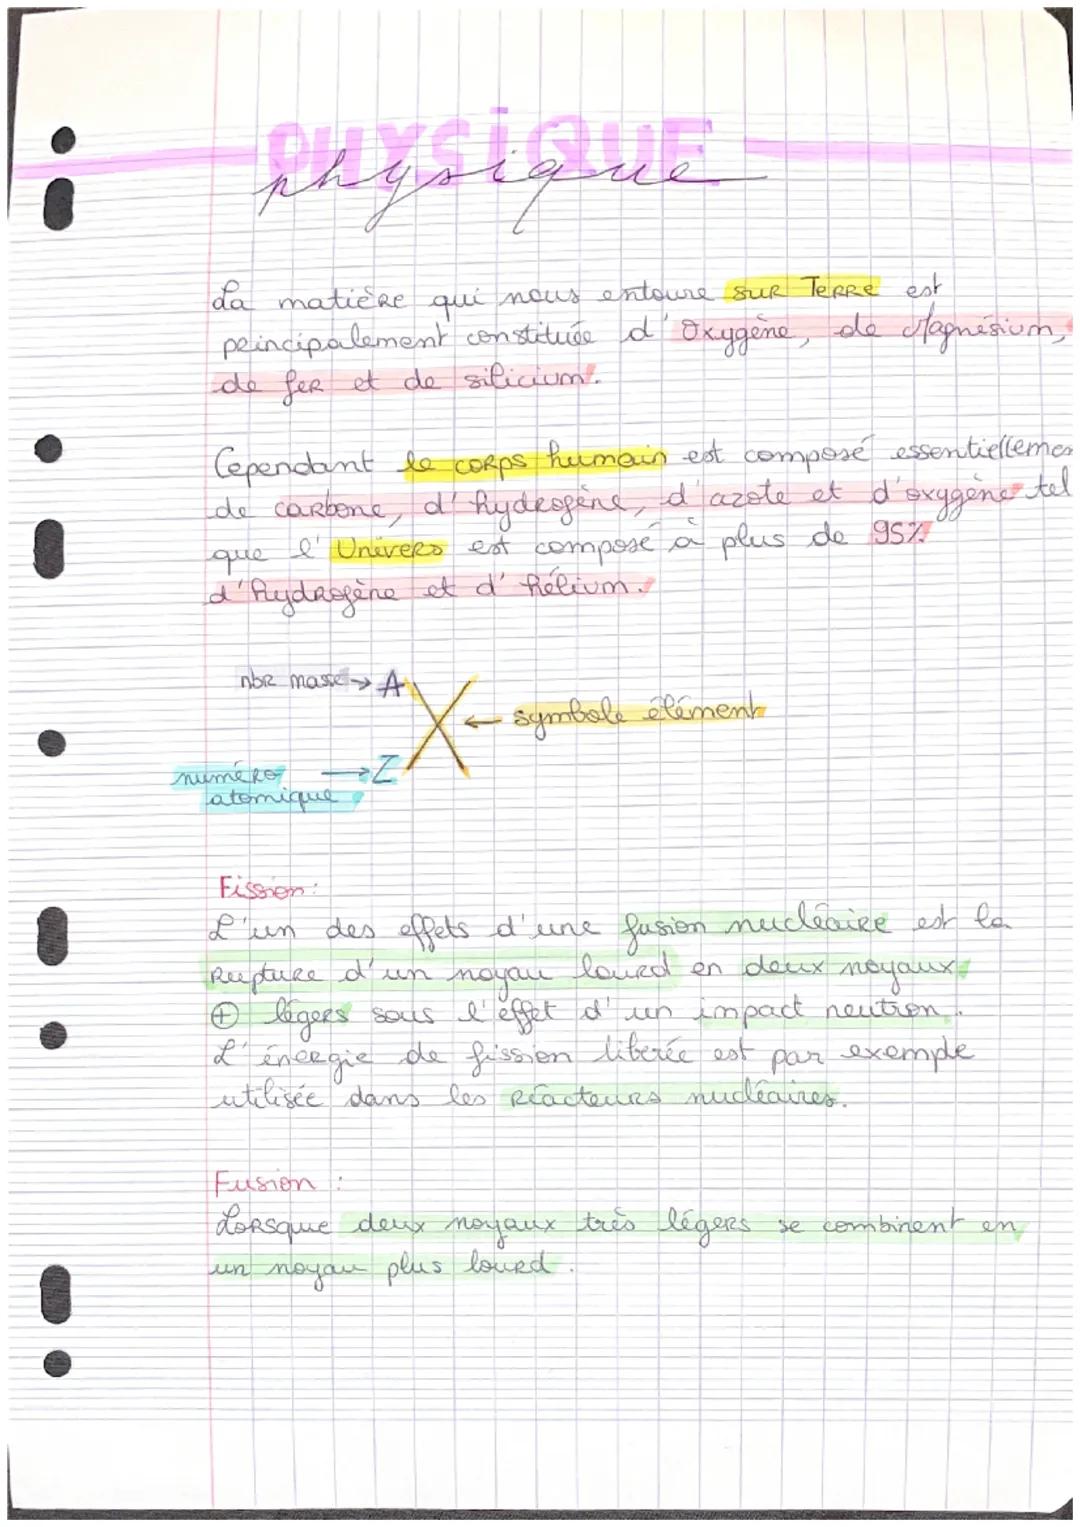 PHYSIQUE
physique
La matière qui nous entoure sur Terre est
principalement constituée d'Oxygène, de Magnésium,
de fer et de silicium.
Cependant le corps humain est composé essentiellemen
de carbone, d'hydrogène, d'azote et d'oxygène tel
que l'Univers est composé à plus de 95%
d'hydrogène et d'hélium.
nbr masse → A
X ← symbole élément
numéro → Z
atomique
Fission :
L'un des effets d'une fusion nucléaire est la
rupture d'un noyau lourd en deux noyaux
⊕ légers sous l'effet d'un impact neutron.
L'énergie de fission liberée est par exemple
utilisée dans les réacteurs nucléaires.
Fusion :
Lorsque deux noyaux très légers se combinent en
un noyau plus lourd.